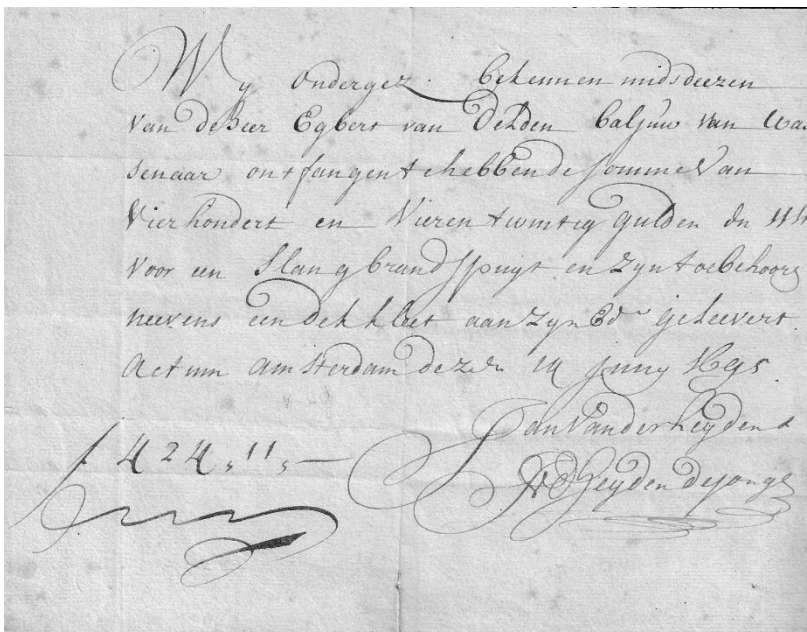 Wy ondergez. bekennen midsdeezen
van de Heer Egbert van Delden baljuw van Wa
senaar ontfangen te hebben de somme van
Vierhondert en Vieren twintig gulden en 11 st
voor een Slang brandspuyt en zyn toebehoore
neevens een dekkleet aan zyn Ed geleevert.
Actum Amsterdam deze Juny 1695
Jan Vander heyden
f 424,, 11,, —
JVD Heyden de Jonge